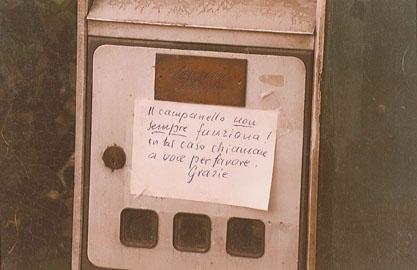 Il campanello non
sempre funziona!
in tal caso chiamare
a voce per favore.
Grazie